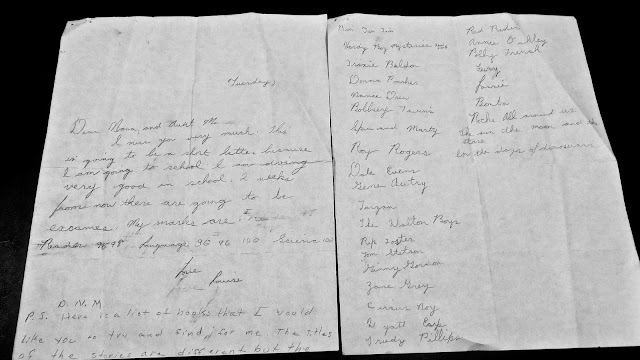 Tuesday,
Dear Mona, and Aunt
I miss you very much. This
is going to be a short letter because
I am going to school. I am doing
very good in school. 2 weeks
from now there are going to be
exames. My marks are
Reader 98 Language 96 96 100 Science 100
Love
Louise
D.N.M
P.S. Here is a list of books that I would
like you to try and find for me. The titles
of the stories are different but the
Rin Tin Tin
Hardy Boy Mysteries
Trixie Beldon
Donna Parker
Nance Drew
Bobbsey Twins
Spin and Marty
Roy Rogers
Dale Evens
Gene Autry
Tarzan
The Walton Boys
Rip Foster
Tom Stetson
Ginny Gordon
Zane Grey
Circus Boy
Wyatt Earp
Trudy Phillips
Red Ryder
Annie Oakley
Polly French
Fury
Lassie
Bomba
Rocks All around us
The sun, the moon and the
stars
In the days of dinosaurs